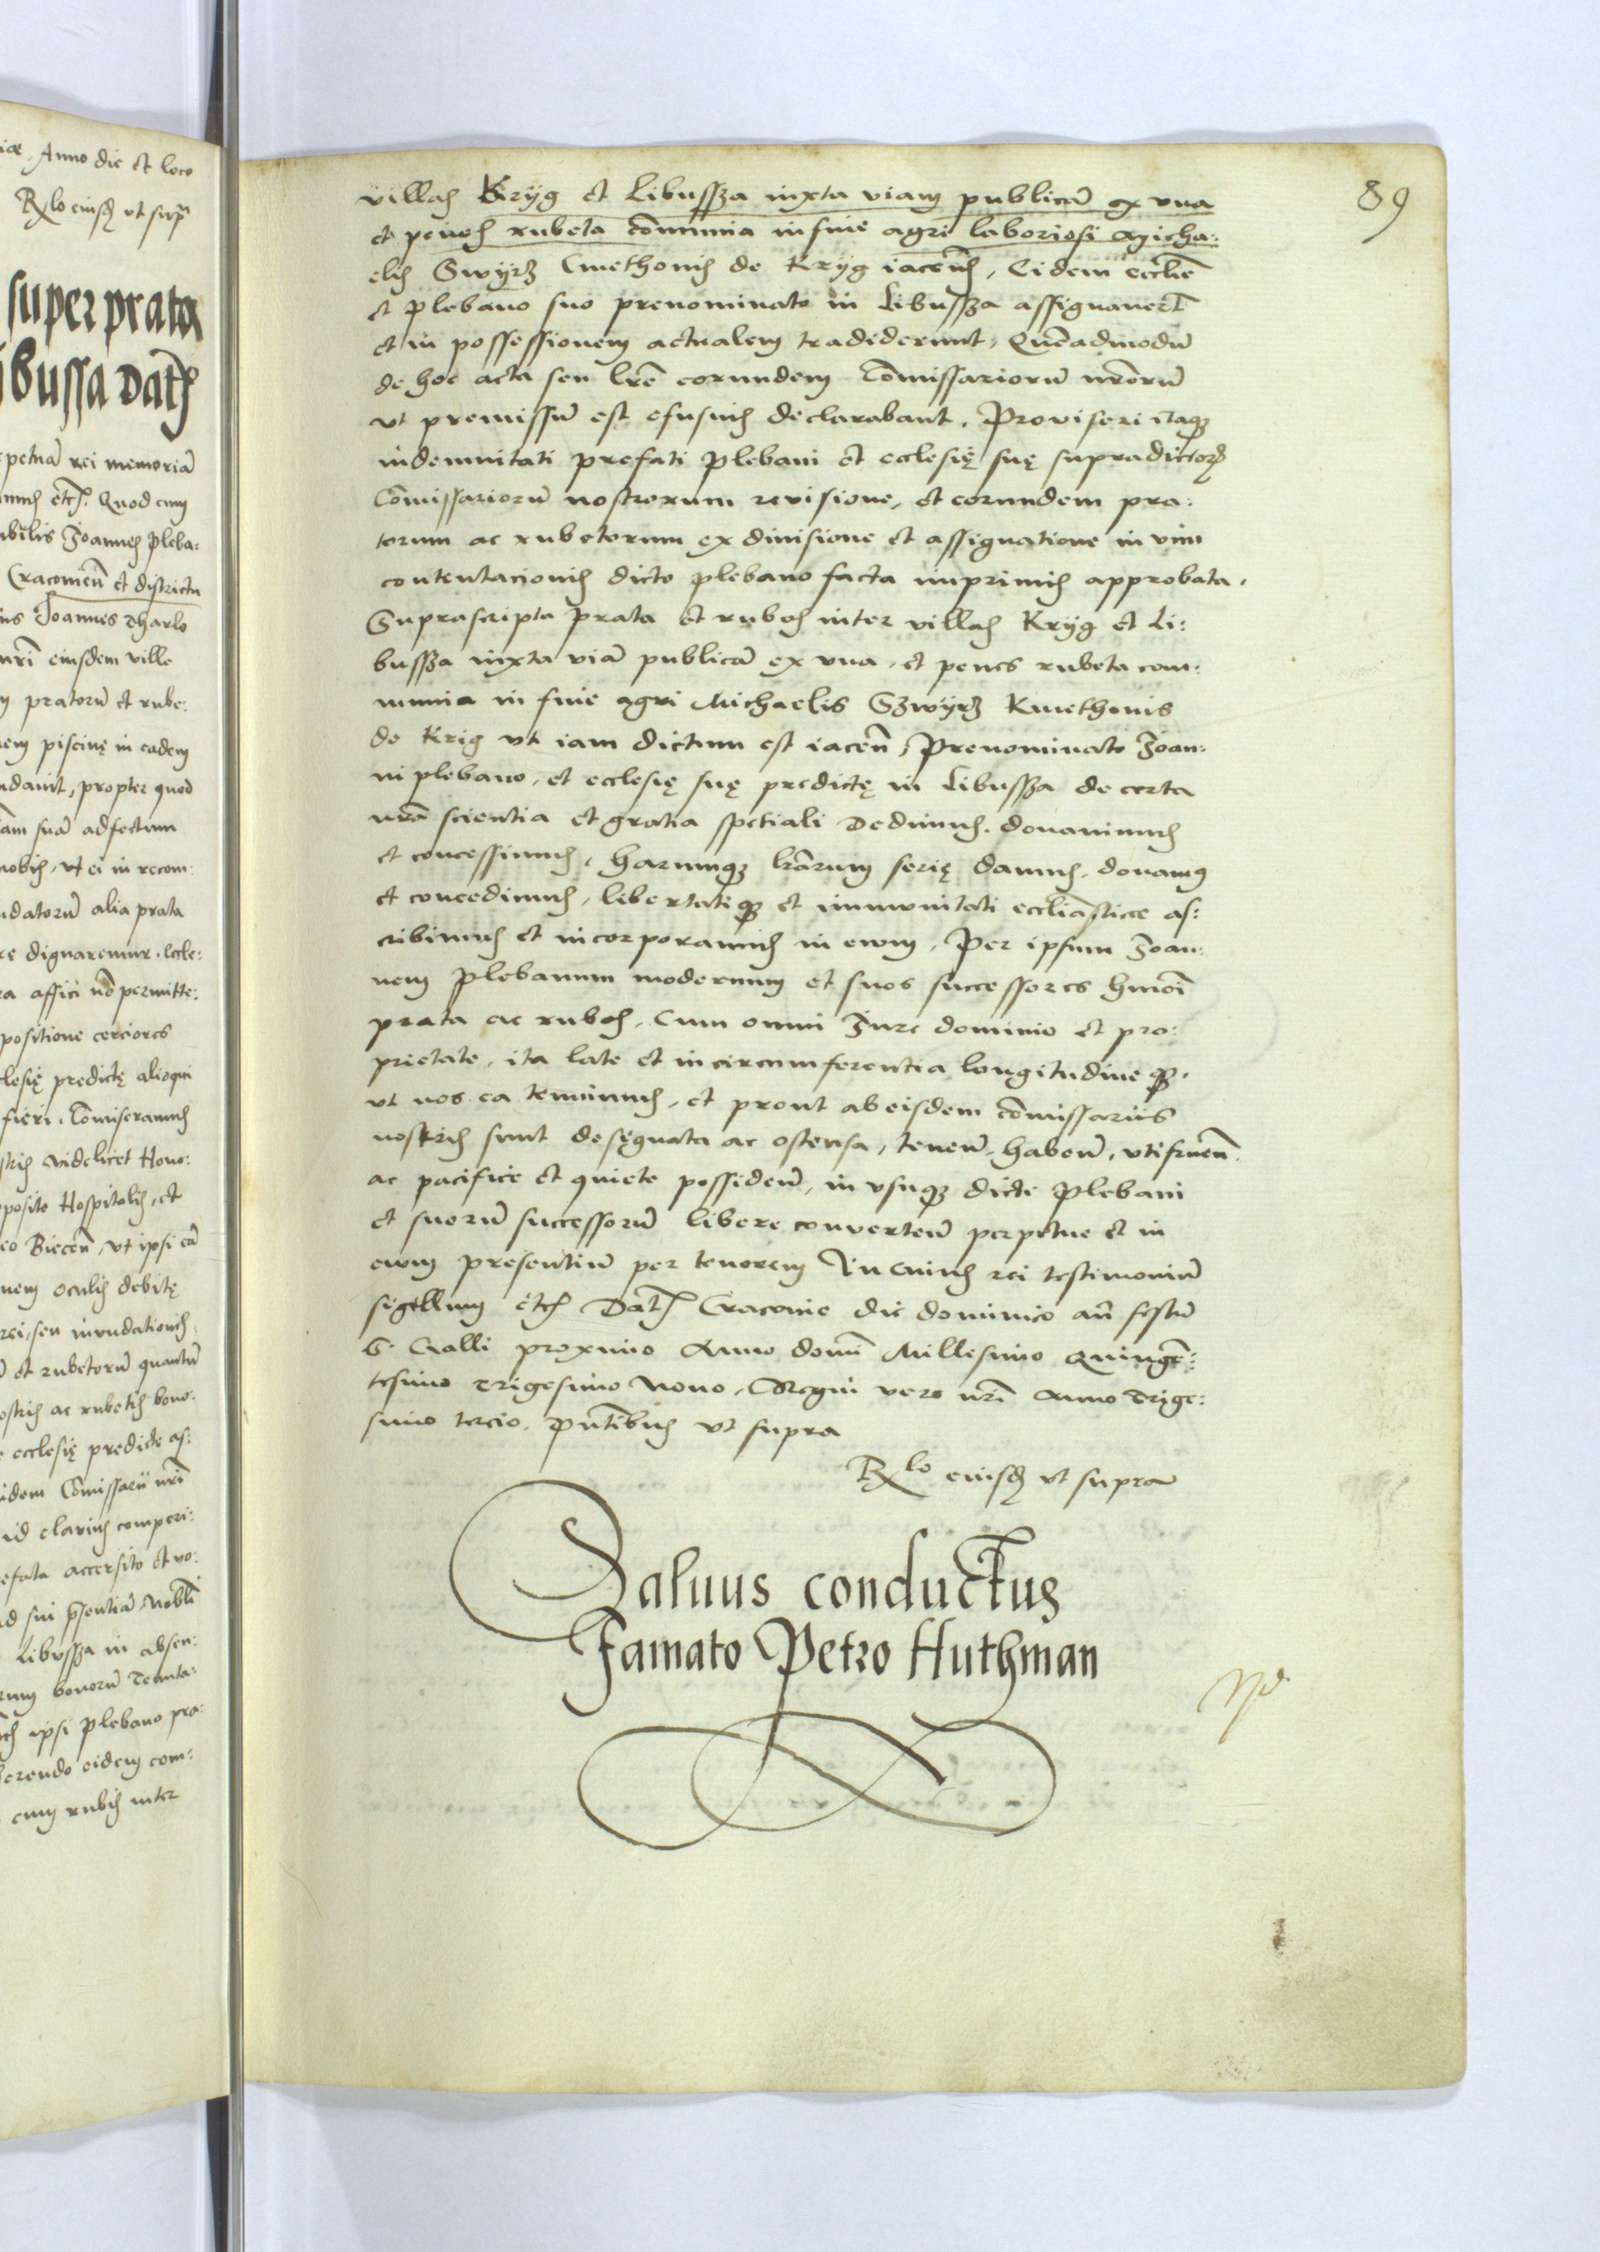 iæ. Anno die et loco
Rxlo eiusdẽ ut supra
super prata
ibussa Dat̃
petuã rei memoriã
etc̃. Quod cum
Joannes pleba:
Cracovieñ et districtu
Joannes Tharlo
nr̃i eiusdem ville
pratorũ et rube:
em piscinę in eadem
ndavit, propter quod
suã ad festum
nobis, ut ei in recom:
ndatorũ alia prata
re dignaremur. Eccle:
ra affici nõ permitte:
positione cerciores
lesię predictę alioqui
fieri. Com̃iseramus
videlicet Hono:
posito Hospitalis, et
eo Biecen̄, ut ipsi eã
nem oculis debitę
rei, seu inundationis
et rubetorũ quantũ
ostris ac rubetis bono:
ecclesię predicte as:
idem Com̃issarii nr̃i
id clarius comperi:
efata accersito et vo:
ad sui pr̃sentiã Nobli
Libussza in absen:
rum bonorũ Tenuta:
ipsi plebano pra:
ferendo eidem com:
cum rubis inter
89
villas Kryg et Libussza iuxta viam publicã ex una
et penes rubeta com̃unia in fine agri laboriosi Micha:
elis Swyrz Cmethonis de Kryg iaceñ, Eidem eccliẽ
et plebano suo prenominato in Libussza assignaver̃t
et in possessionem actualem tradiderunt, Quẽadmodũ
de hoc acta seu lr̃e eorundem Com̃issariorũ nr̃orũ
ut premissũ est efusius declarabant. Proviseri itaq;
indemnitati prefati plebani et ecclesię suę supradictorũ
Com̃issariorũ nostrorum revisione, et eorundem pra:
torum ac rubetorum ex divisione et assignatione in vim
contentacionis dicto plebano facta imprimis approbata.
Suprascripta prata et rubos inter villas Kryg et Li:
bussza iuxta viã publicã ex una, et penes rubeta com:
munia in fine agri Michaelis Szwyrz Kmethonis
de Krig ut iam dictum est iaceñ, Prenominato Joan:
ni plebano, et ecclesię suę predictę in Libussza de certa
nr̃a scientia et gratia spetiali Dedimus, donavimus
et concessimus, Harumq; lr̃arum serię damus, donamus
et concedimus, libertatiq; et immunitati eccliasticæ as:
cribimus et incorporamus in evum, Per ipsum Joan:
nem Plebanum modernum et suos successores hmoi
prata ac rubos. Cum omni Jure dominio et pro:
prietate, ita late et in circumferentia longitudine q;.
ut nos ea tenuimus, et prout ab eisdem com̃issariis
nostris sunt desęgnata ac ostensa, teneñ, habeñ, utifrueñ.
ac pacifice et quiete possideñ, in usuq; dicte Plebani
et suorũ successorũ libere converteñ perpetue et in
evum presentiũ per tenorem In cuius rei testimoniũ
sigillum etc̃ Dat̃ Cracovie die dominico añ festũ
S. Galli proximo Anno domi Millesimo Quingẽ:
tesimo trigesimo Nono, Regni vero nr̃i Anno Trige:
simo tercio. Pn̄tibus ut supra
Rxlo eiusdẽ ut supra
Salvus conductus
Famato Petro Huthman